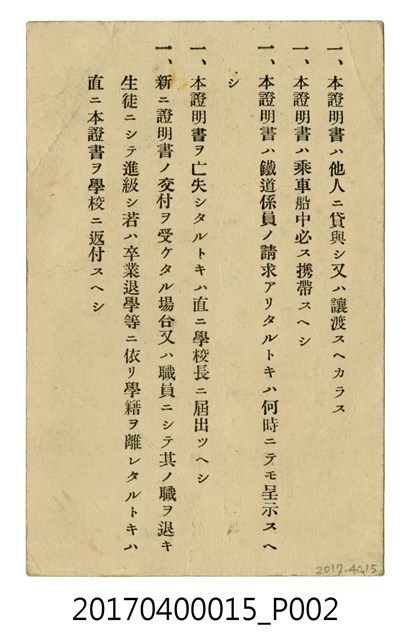 一、本證明書ハ他人ニ貸與シ又ハ讓渡スヘカラス
一、本證明書ハ乘車船中必ス携帶スヘシ
一、本證明書ハ鐵道係員ノ請求アリタルトキハ何時ニテモ呈示スヘ
シ
一、本證明書ヲ亡失シタルトキハ直ニ學校長ニ屆出ツヘシ
一、新ニ證明書ノ交付ヲ受ケタル場合又ハ職員ニシテ其ノ職ヲ退キ
生徒ニシテ進級シ若ハ卒業退學等ニ依リ學籍ヲ離レタルトキハ
直ニ本證書ヲ學校ニ返付スヘシ
2017.40.15
20170400015_P002